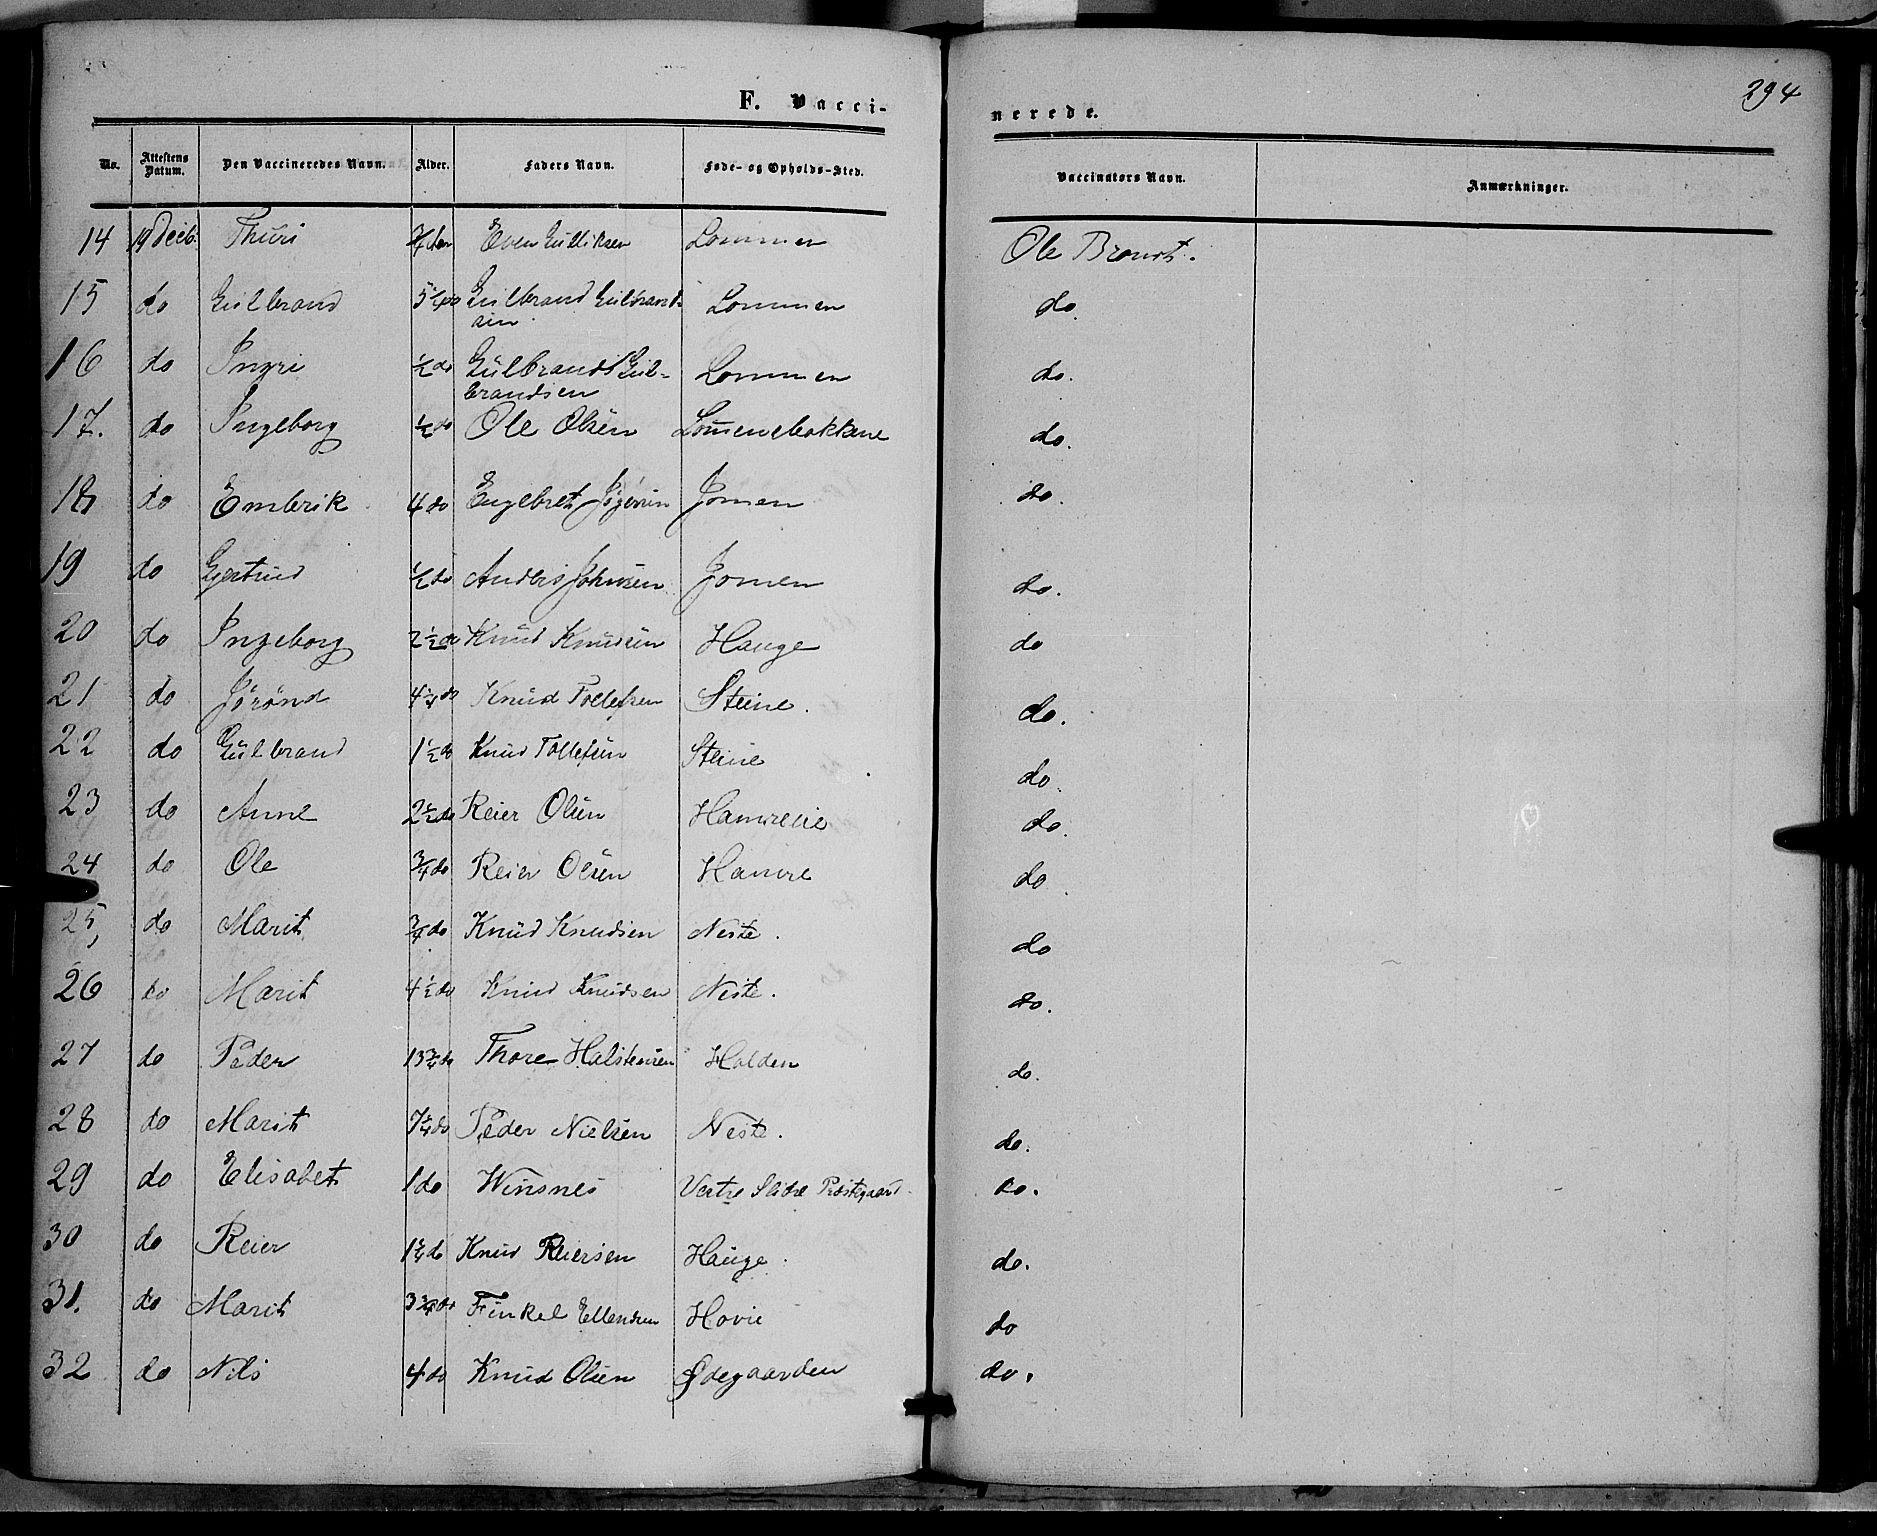 294
F. Vacci-
nerede.
No. Attestens Datum. Den Vaccineredes Navn. Alder. Faders Navn. Føde- og Opholds-Sted. Vaccinators Navn. Anmærkninger.
14 19 Decb. Thuri Even Gulliksen Lommen Ole Brandt.
15 do Gulbrand 5 do Gulbrand Gulbrand- Lommen do.
sen
16 do Ingri 1/2 do Gülbrand Gul- Lommen do.
brandsen
17. do Ingeborg 1/2 do Ole Olsen Lom̅enebakkene do.
18 do Embrik 4 do Engebret Jomen do.
19 do Gjertrud 1/2 do Anders Johnsen Jomen do.
20 do Ingeborg 2 1/2 do Knud Knudsen Hauge do
21 do Jørønd 4 1/4 do Knud Tollefsen Steine. do.
22 do Gülbrand 1 1/2 do Knud Tollefsen Steine do.
23 do Anne 2 1/2 do Reier Olsen do.
24 do Ole 3/4 do Reier Olsen Hamre do
25, do Marit 3/4 do Knud Knudsen Neste. do
26 do Marit 4 1/2 do Knud Knudsen Neste. do.
27 do Peder 13 3/4 do Thore Halstensen Halden do.
28 do Marit 7 3/4 do Peder Nielsen Neste. do.
29 do Elisabet 1 do Winsnes Vestre Slidre Præstegaard. do.
30 do Reier 1 3/4 do Knud Reiersen Hauge. do.
31. do Marit 3 3/4 do Finkel Ellendsen Hovie do
32 do Nils 4 do Knud Olsen Ødegaarden do.